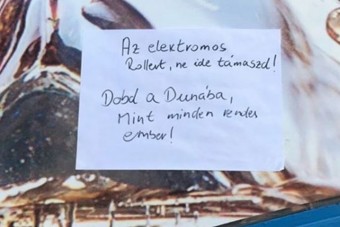 Az elektromos
Rollert, ne ide támaszd!
Dobd a Dunába,
Mint minden rendes
ember!